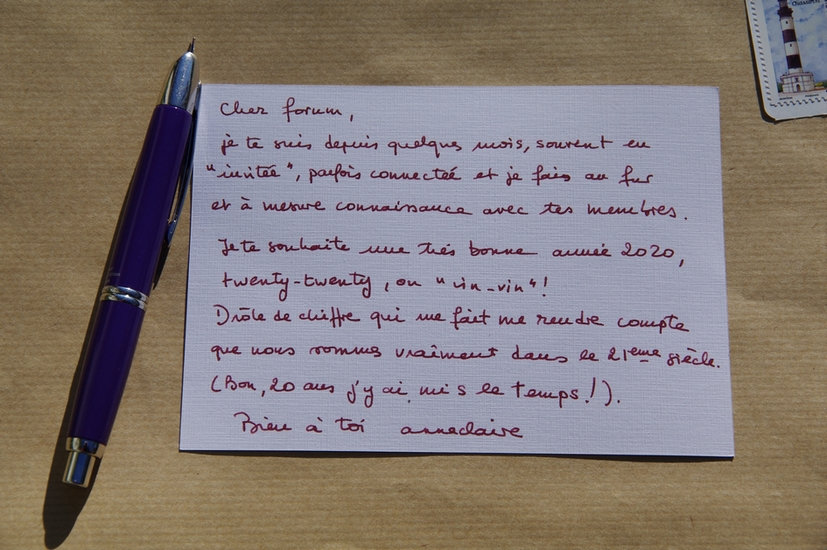 Cher forum,
je te suis depuis quelques mois, souvent en
"invitée", parfois connectée et je fais au fur
et à mesure connaissance avec tes membres.
Je te souhaite une très bonne année 2020,
twenty-twenty, ou "vin-vin"!
Drôle de chiffre qui me fait me rendre compte
que nous sommes vraiment dans le 21eme siècle.
(Bon, 20 ans j'y ai mis le temps!).
Bien à toi anneclaire